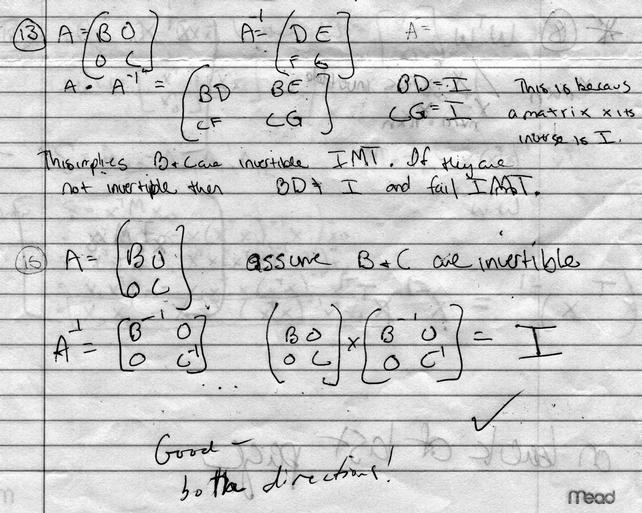 (13) A = (B O   A⁻¹ = (D E   A =
O C)   F G)
A • A⁻¹ = (BD BE   BD = I   This is becaus
CF CG)   CG = I   a matrix x its
inverse is I.
This implies B + C are invertible IMT. If they are
not invertible then BD ≠ I and fail IMT.
(15) A = (B O   assume B + C are invertible
O C)
A⁻¹ = [B⁻¹ O   [B O   × [B⁻¹ O   = I
O C⁻¹]   O C]   O C⁻¹]
Good –
both directions!
Mead